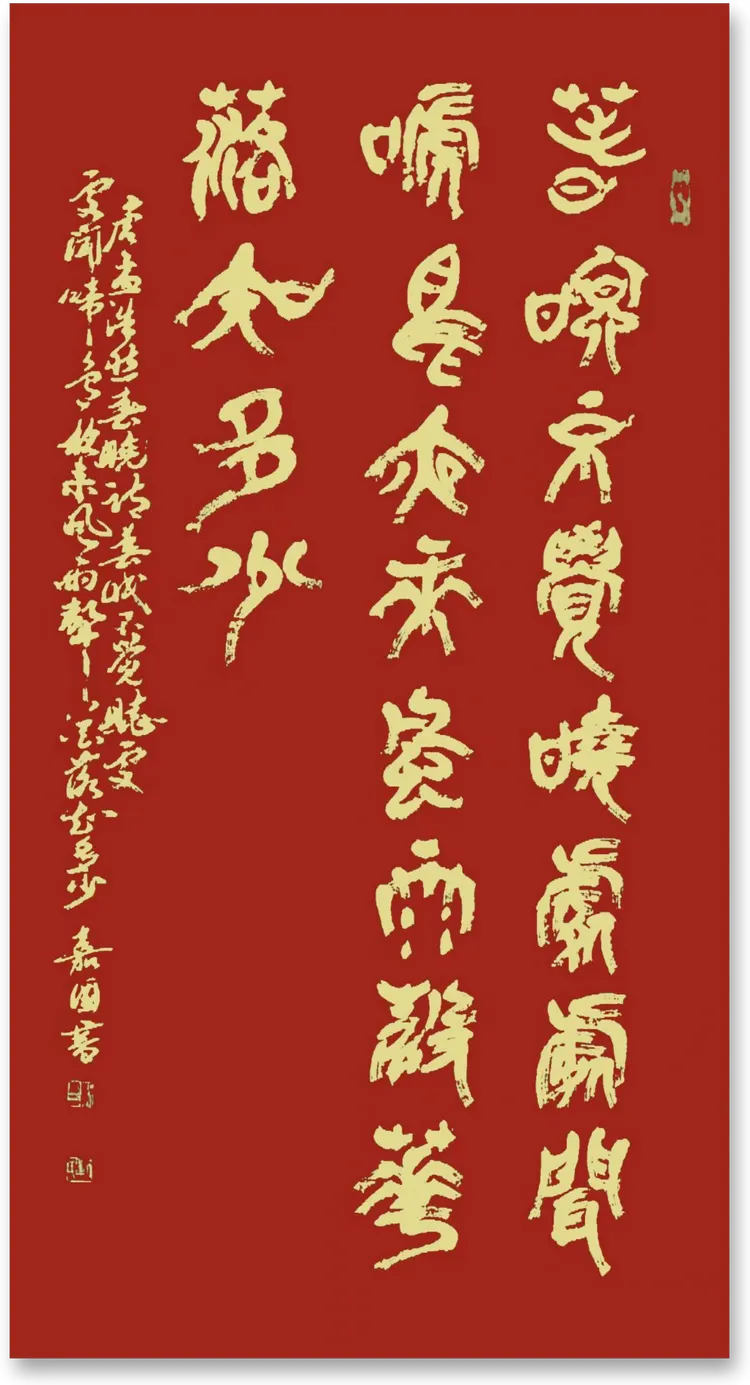 春眠不覺曉處處聞
啼鳥夜來風雨聲華
落知多少
唐孟浩然春曉詩春眠不覺曉處
處聞啼鳥夜來風雨聲花落知多少 嘉国書